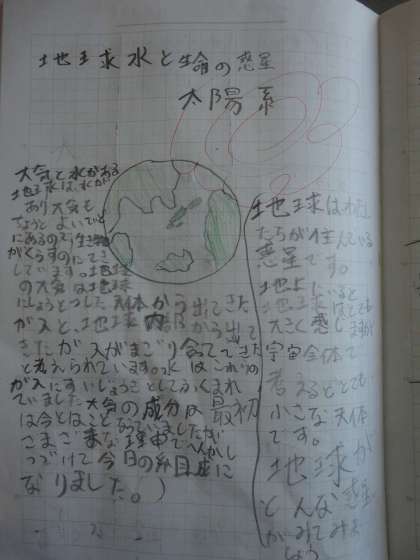 地球水と生命の惑星
太陽系
大気と水がある
地球は、水が
あり大気も
ちょうどよいていど
にあるので、生き物
がくらすのにてき
しています。地球
の大気は地球
にしょうとつした天体から出てきた
ガスと、地球内部から出て
きたガスがまざり合ってできた
と考えられています。水はこれらの
ガスにすいじょうきとしてふくまれ
でいました大気の成分は最初
は今とはことなっていましたが
さまざまな理由でへんかし
つづけて今日の
なりました。）
地球はわたし
たちが住んでいる
惑星です。
地上にいると
地球はとても
大きく感じますが
宇宙全体で
考えるととても
小さな天体
です。
地球が
どんな惑星
かみてみま
しょう